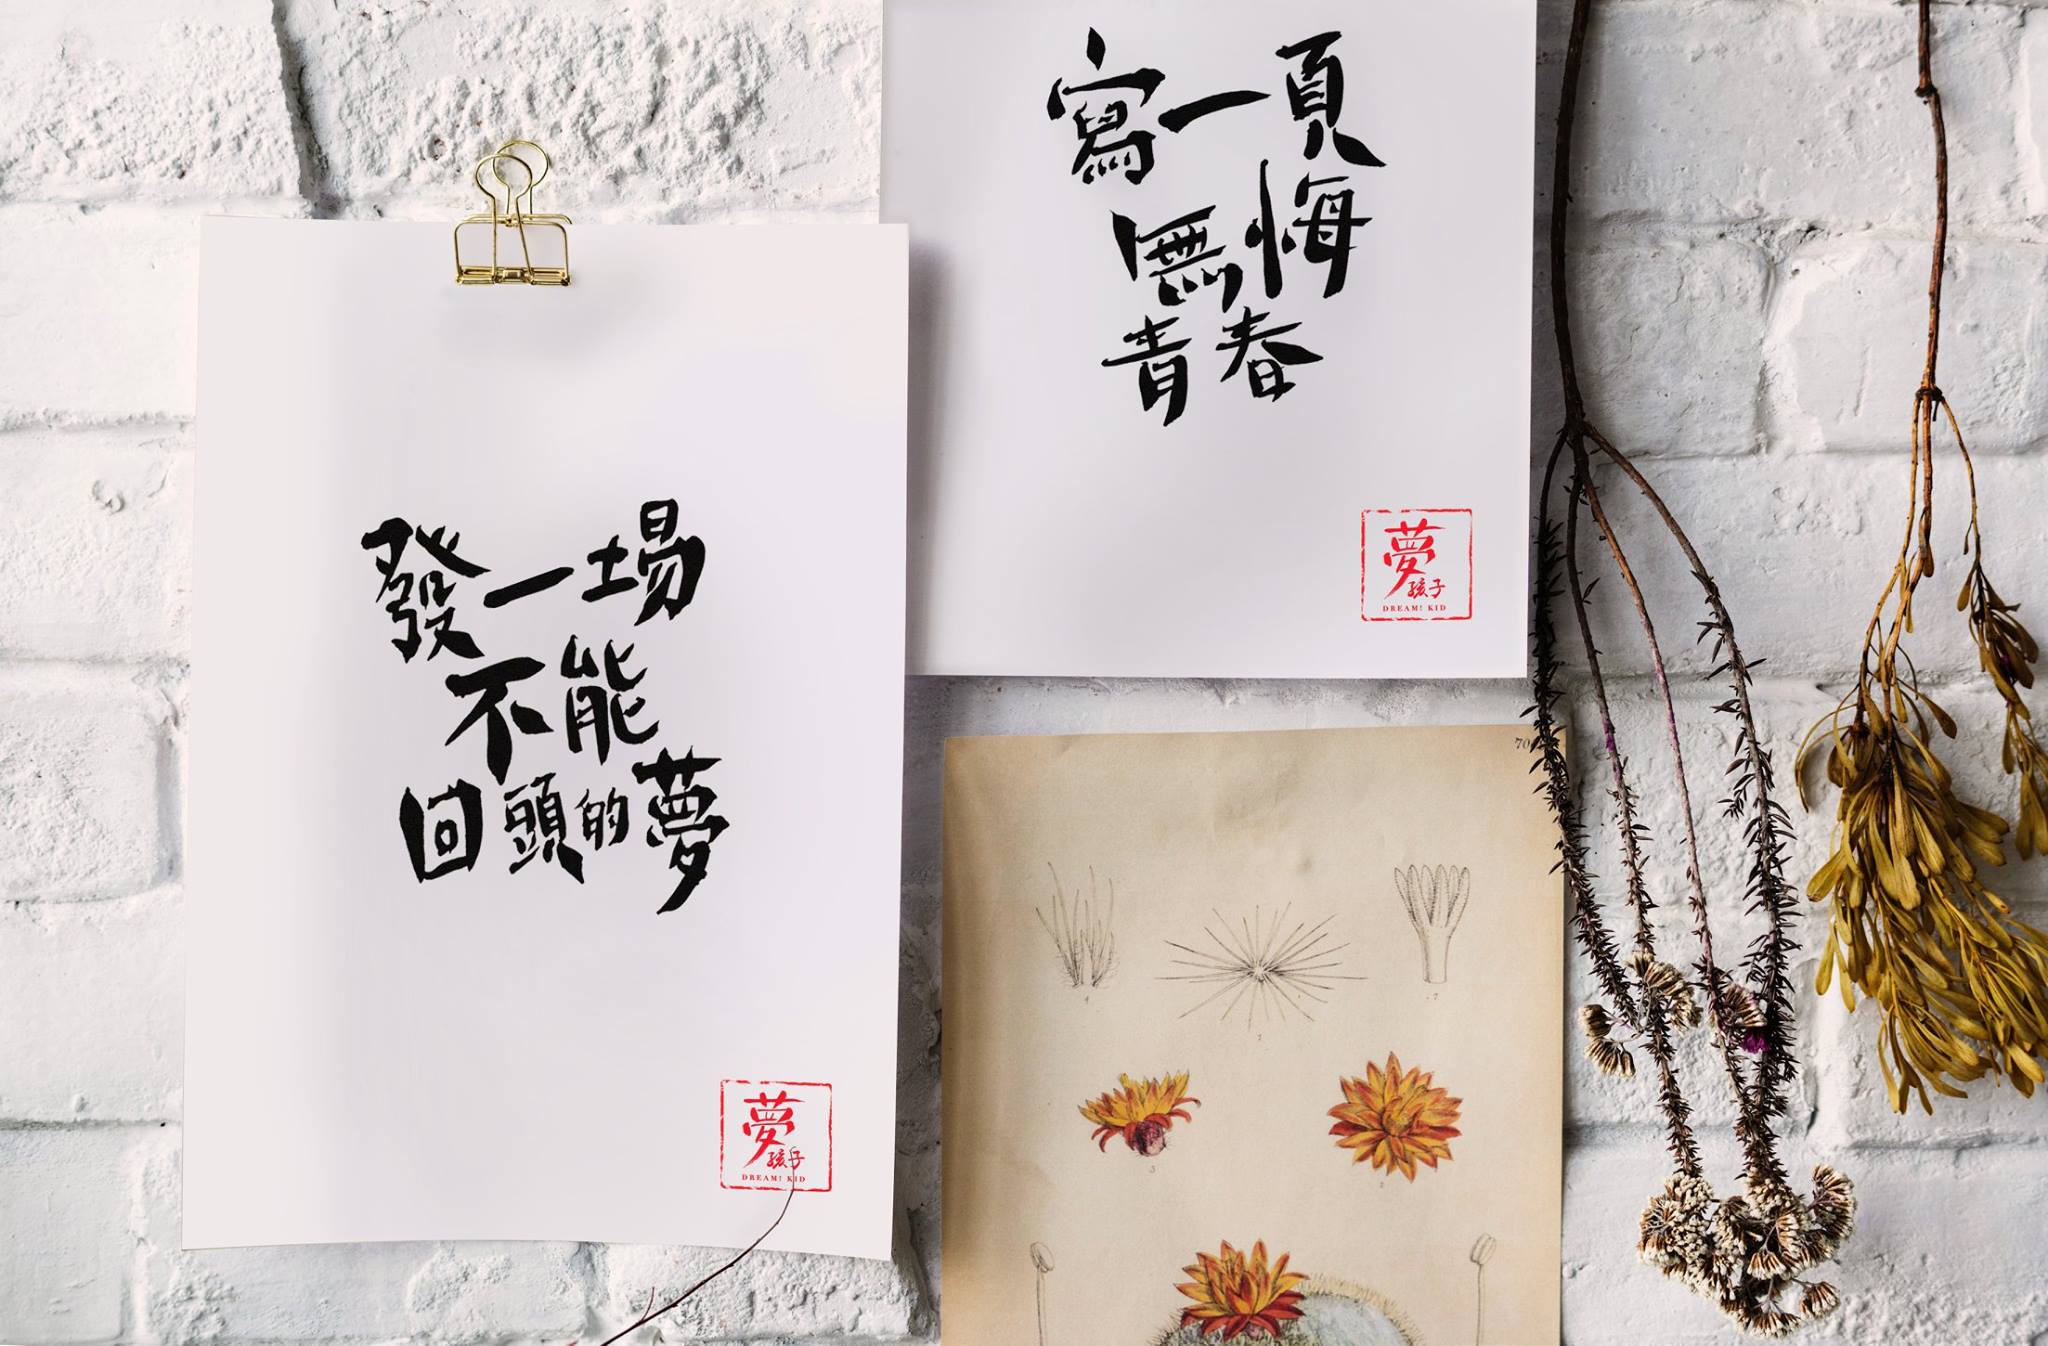 發一場
不能
回頭的夢
夢
孩子
DREAM! KID
寫一頁
無悔
青春
夢
孩子
DREAM! KID
70
1
2
3
2